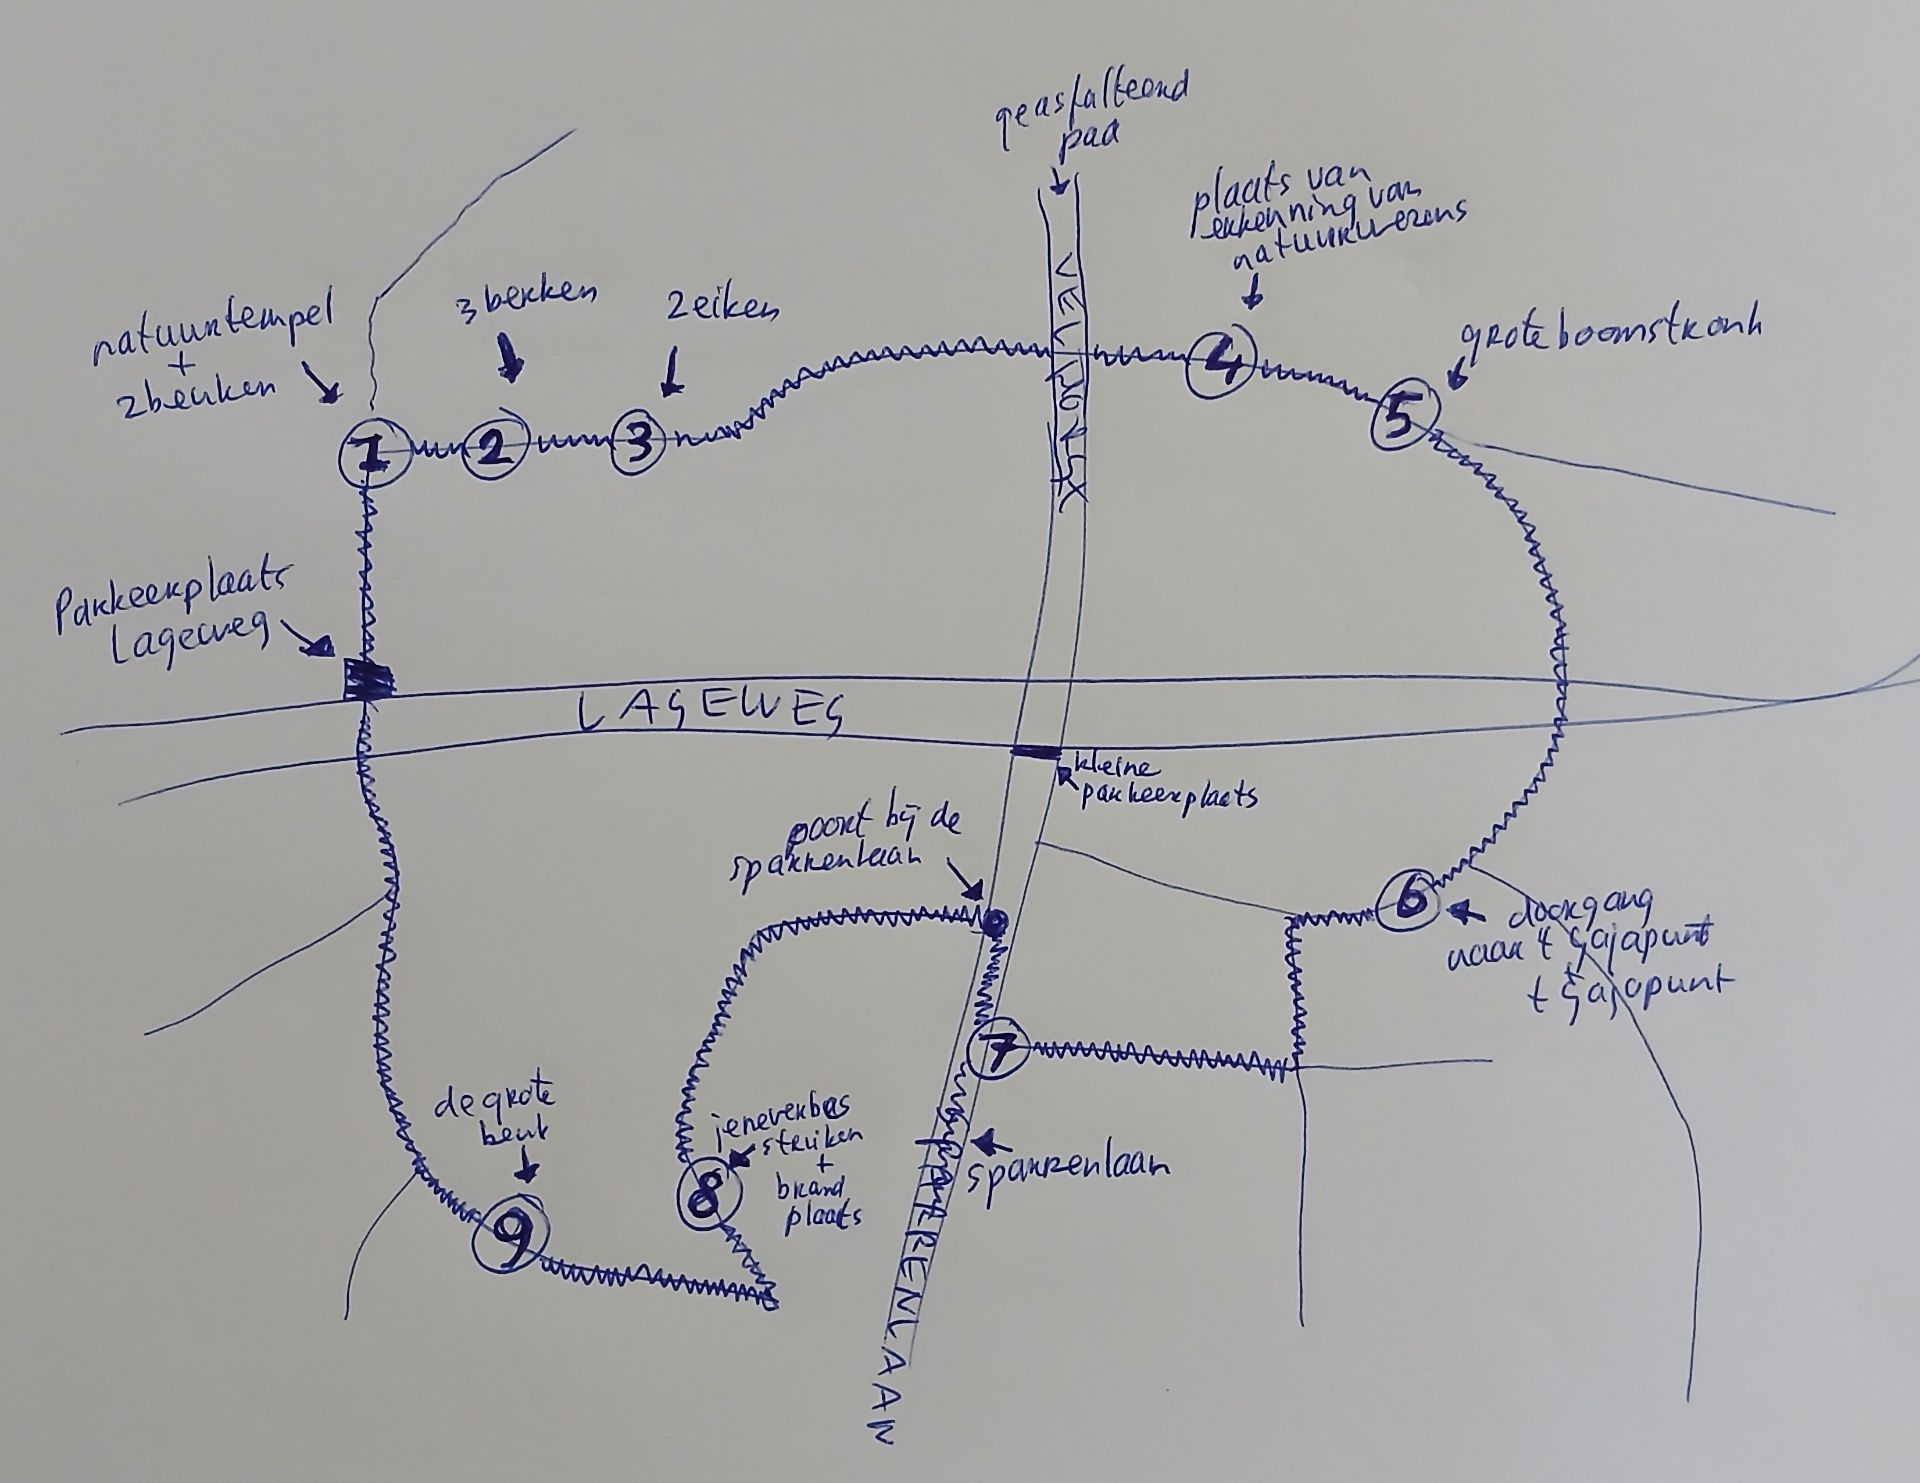 geasfalteerd
pad
plaats van
erkenning van
natuurwezens
3 berken
2 eiken
natuurtempel
+
2 beuken
grote boomstronk
1
2
3
4
5
Parkeerplaats
Lageweg
LAGEWEG
kleine
parkeerplaats
poort bij de
sparrenlaan
6
doorgang
naar 't Gajapunt
't Gajapunt
7
de grote
beuk
jeneverbes
struiken
+
brand
plaats
sparrenlaan
8
9
SPARRENLAAN